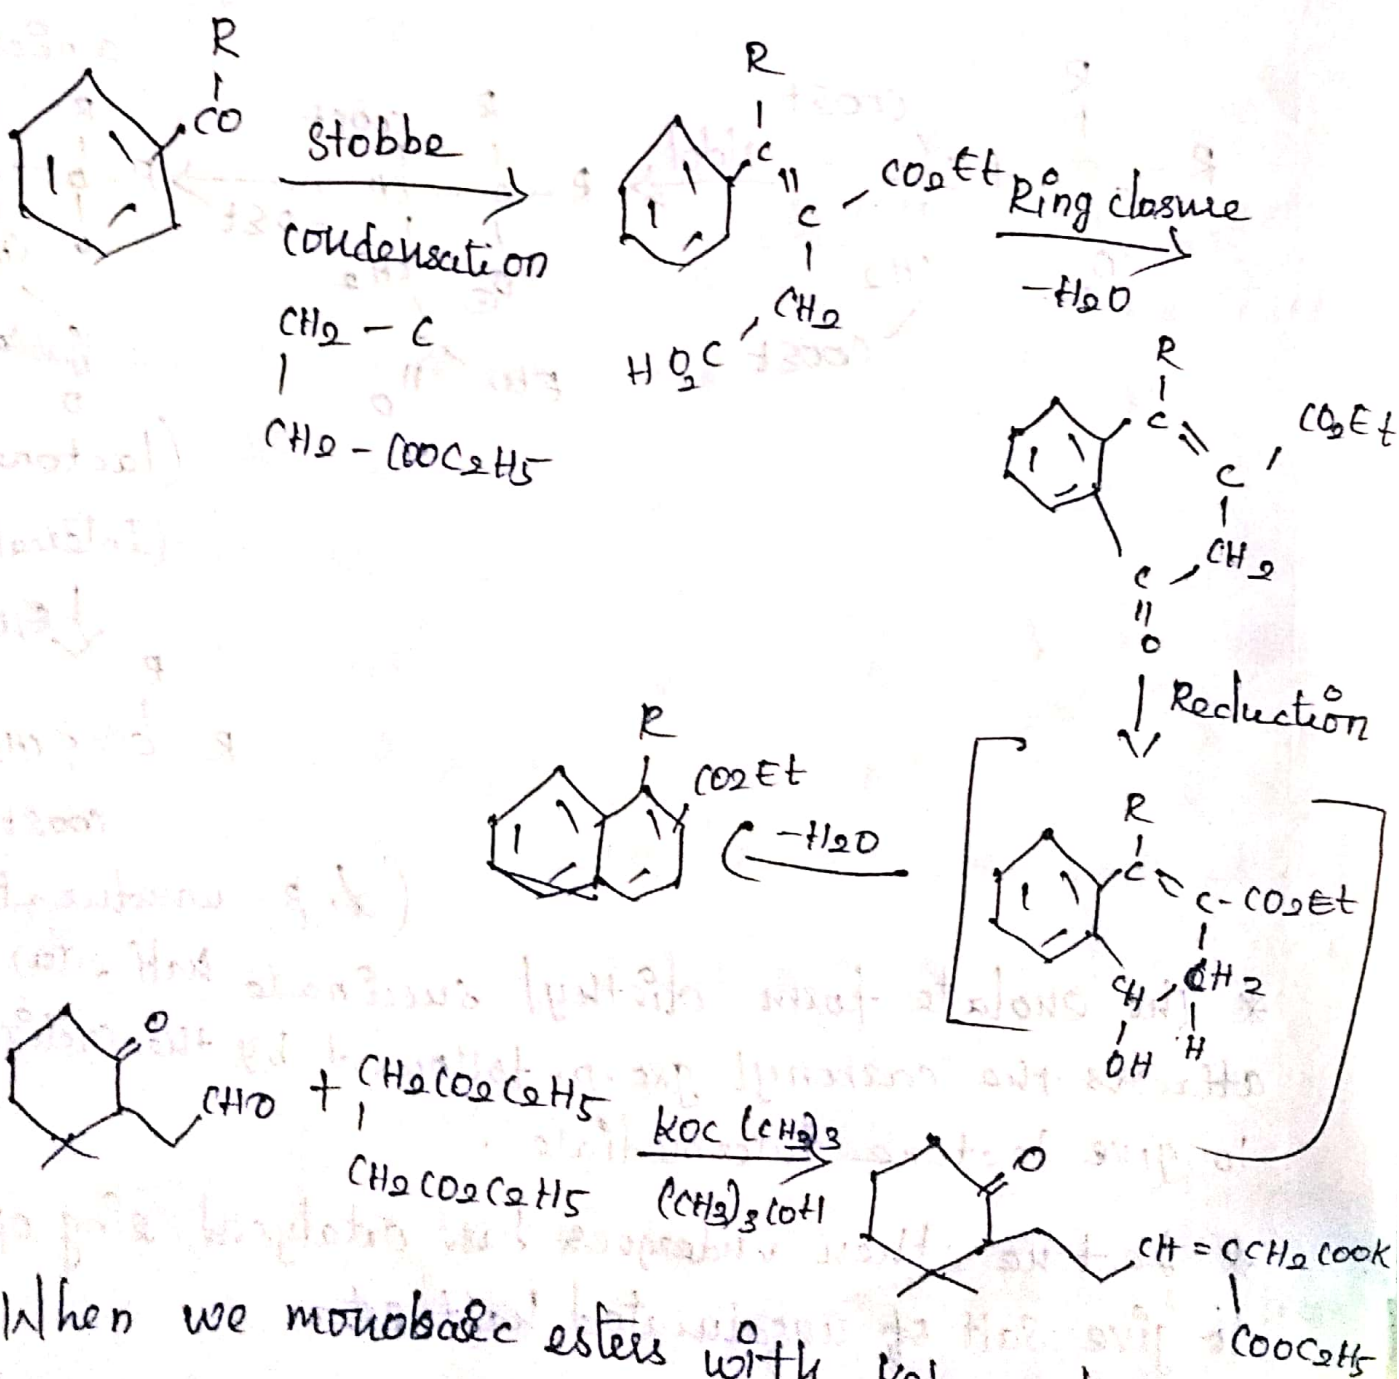 R
CO
Stobbe
condensation
CH2 - C
CH2 - COOC2H5
R
C
C
CO2Et
CH2
HO2C
Ring closure
-H2O
R
C
C
CO2Et
CH2
C
O
Reduction
R
C
C - CO2Et
CH2
CH
OH
H
-H2O
R
CO2Et
O
CHO
+
CH2CO2C2H5
CH2CO2C2H5
KOC (CH3)3
(CH3)3COH
O
CH = CCH2COOK
COOC2H5
When we monobasic esters with